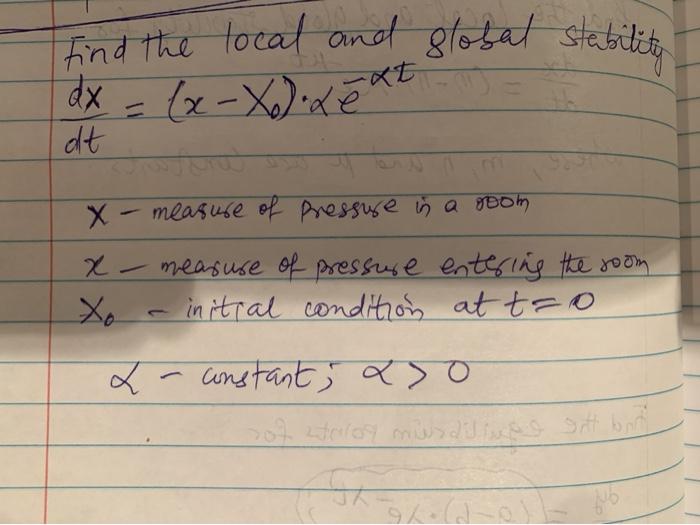 Find the local and global stability
dx/dt = (x - X₀)·αe^-αt
X - measure of pressure in a room
x - measure of pressure entering the room
X₀ - initial condition at t=0
α - constant; α > 0